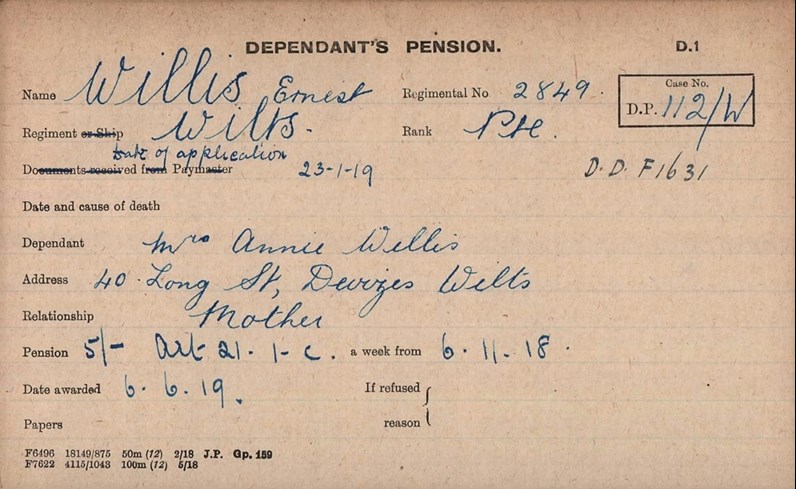 DEPENDANT'S PENSION. D.1
Name Willis Ernest Regimental No 2849. Case No. D.P. 112/W
Regiment or Ship Wilts. Rank Pte.
Date of application
Documents received from Paymaster 23-1-19 D.D. F1631
Date and cause of death
Dependant Mrs Annie Willis
Address 40 Long St, Devizes Wilts
Relationship Mother
Pension 5/- Art 21.1-c. a week from 6.11.18.
Date awarded 6.6.19. If refused
Papers reason
F6496 18149/875 50m (12) 2/18 J.P. Gp. 159
F7622 4115/1043 100m (12) 5/18